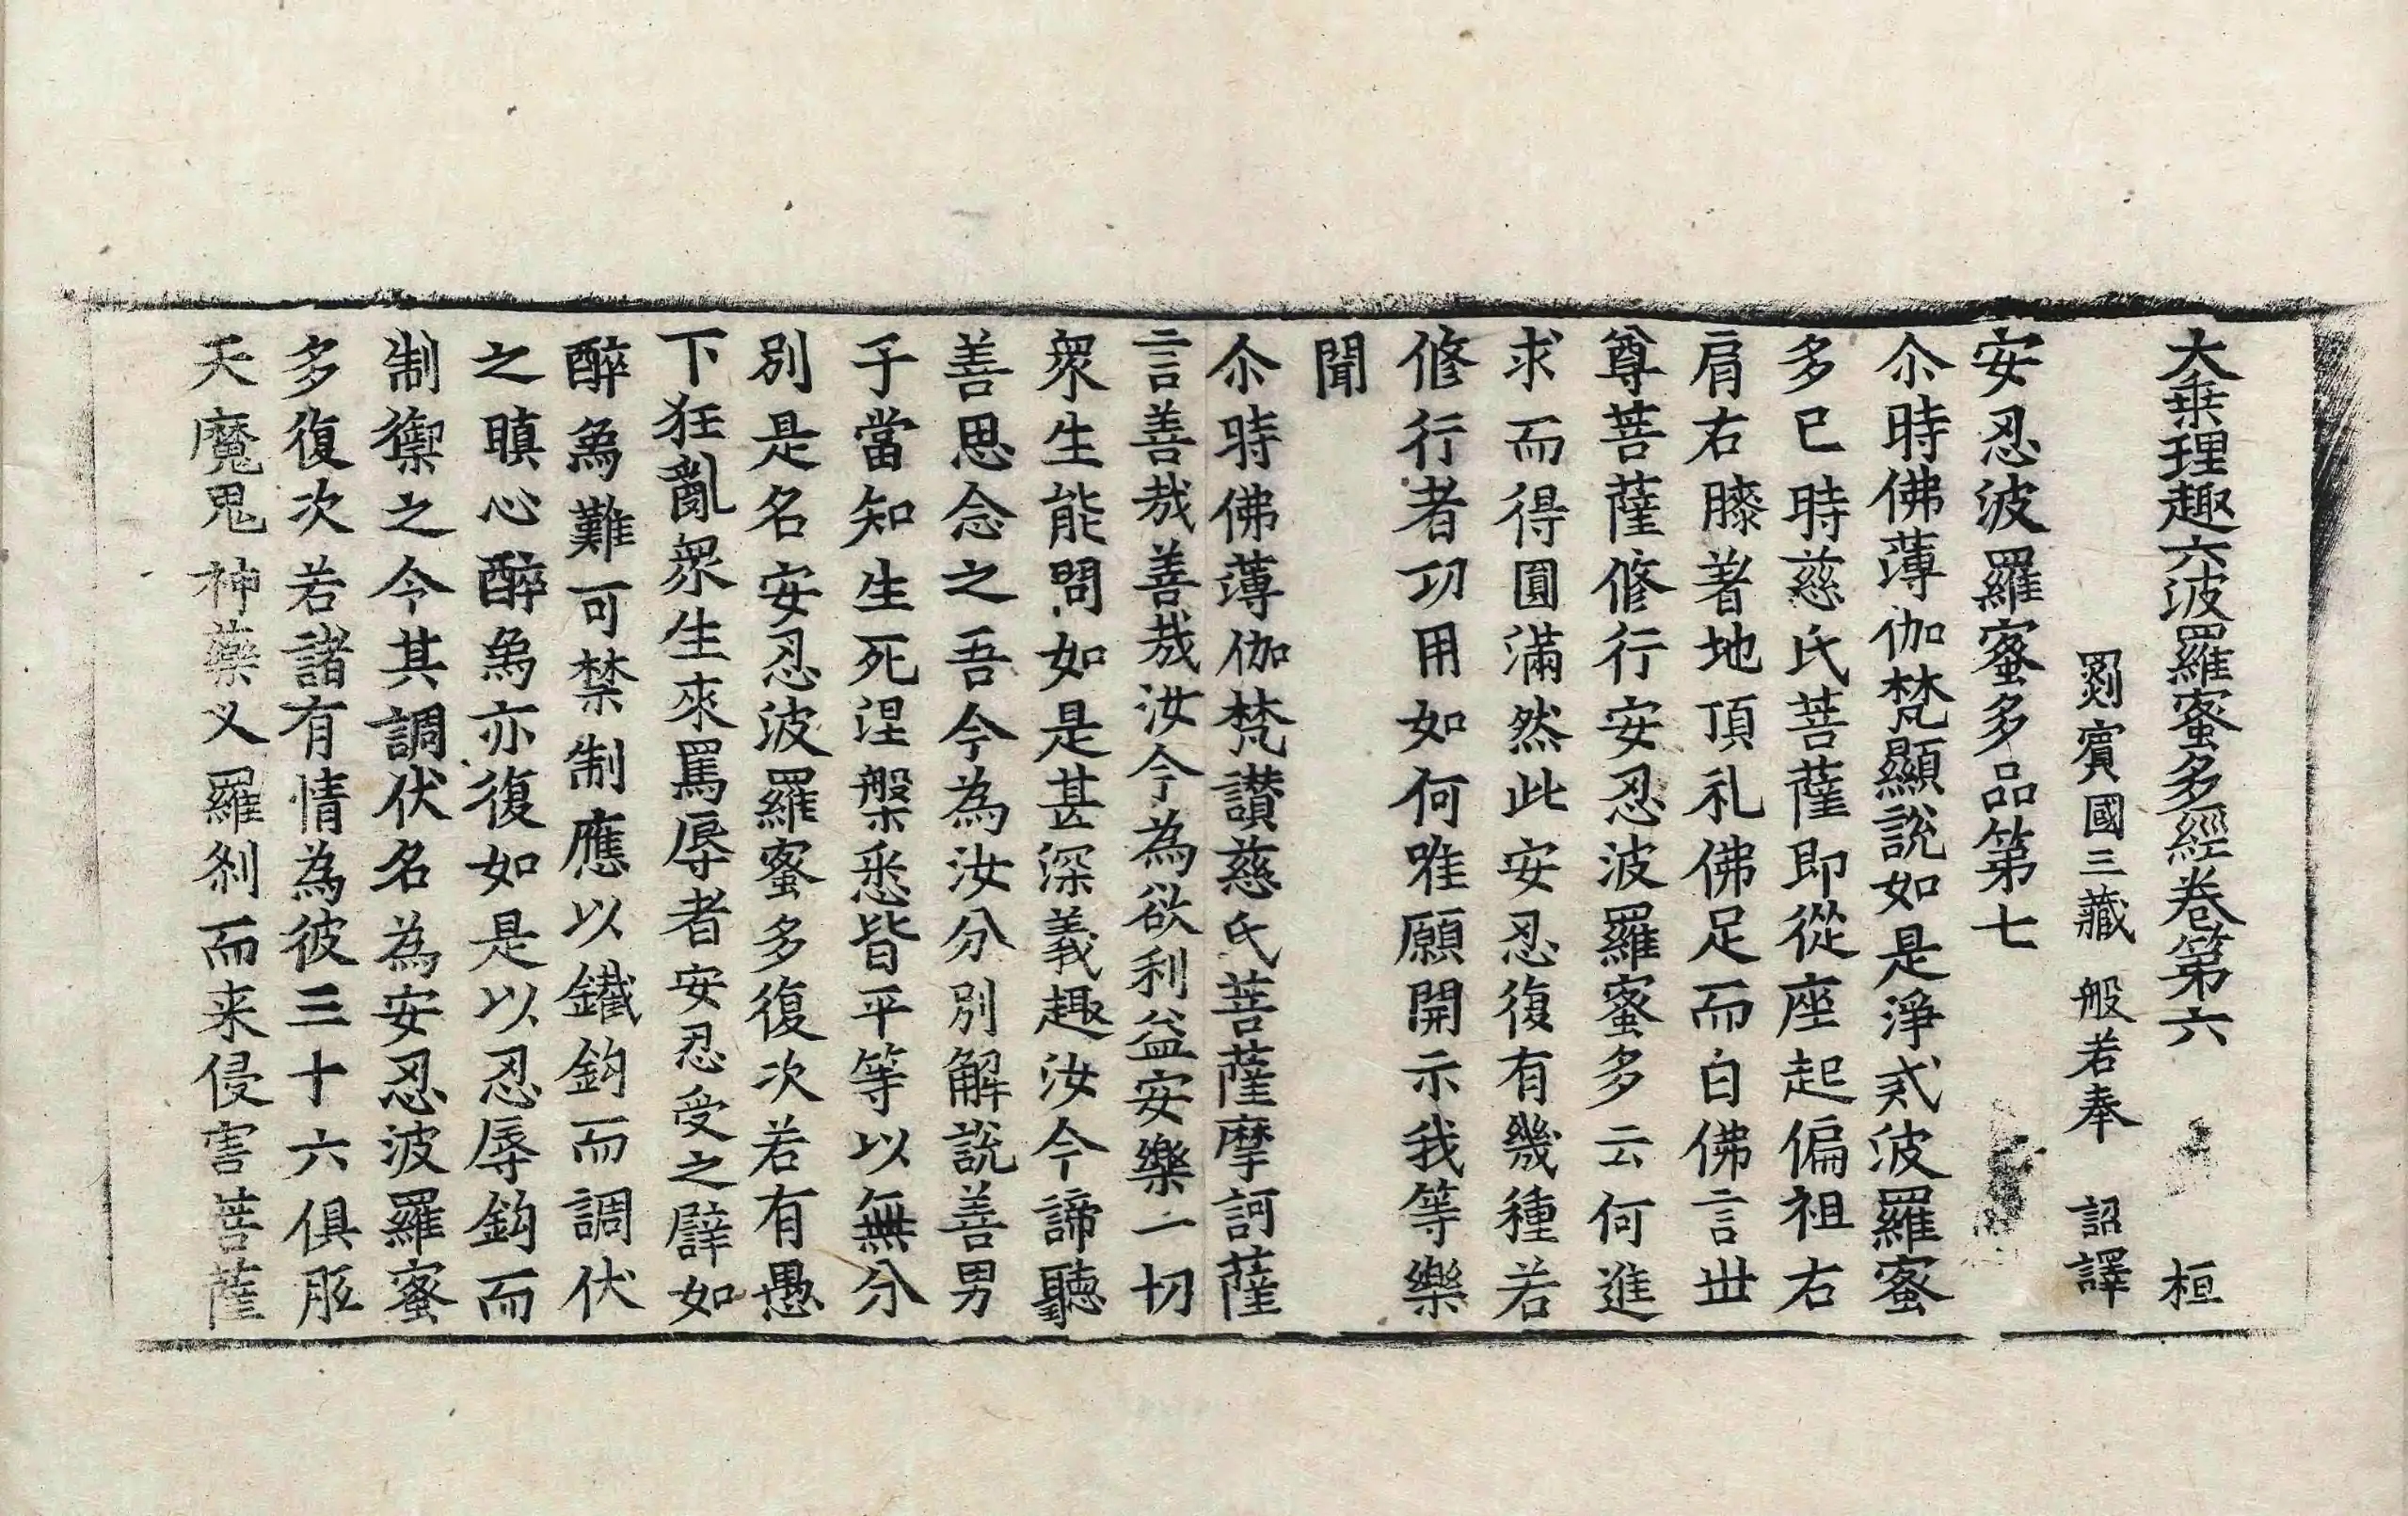 大乗理趣六波羅蜜多經卷第六 桓
罽賓國三藏 般若奉 詔譯
安忍波羅蜜多品第七
尒時佛薄伽梵顯說如是淨戒波羅蜜
多已時慈氏菩薩即從座起偏袒右
肩右膝著地頂礼佛足而白佛言丗
尊菩薩修行安忍波羅蜜多云何進
求而得圓滿然此安忍復有幾種若
修行者功用如何唯願開示我等樂
聞
尒時佛薄伽梵讃慈氏菩薩摩訶薩
言善哉善哉汝今為欲利益安樂一切
衆生能問如是甚深義趣汝今諦聽
善思念之吾今為汝分別解說善男
子當知生死涅槃悉皆平等以無分
別是名安忍波羅蜜多復次若有愚
下狂亂衆生來罵辱者安忍受之譬如
醉象難可禁制應以鐵鈎而調伏
之瞋心醉象亦復如是以忍辱鈎而
制禦之令其調伏名為安忍波羅蜜
多復次若諸有情為彼三十六俱胝
天魔鬼神藥义羅刹而来侵害菩薩